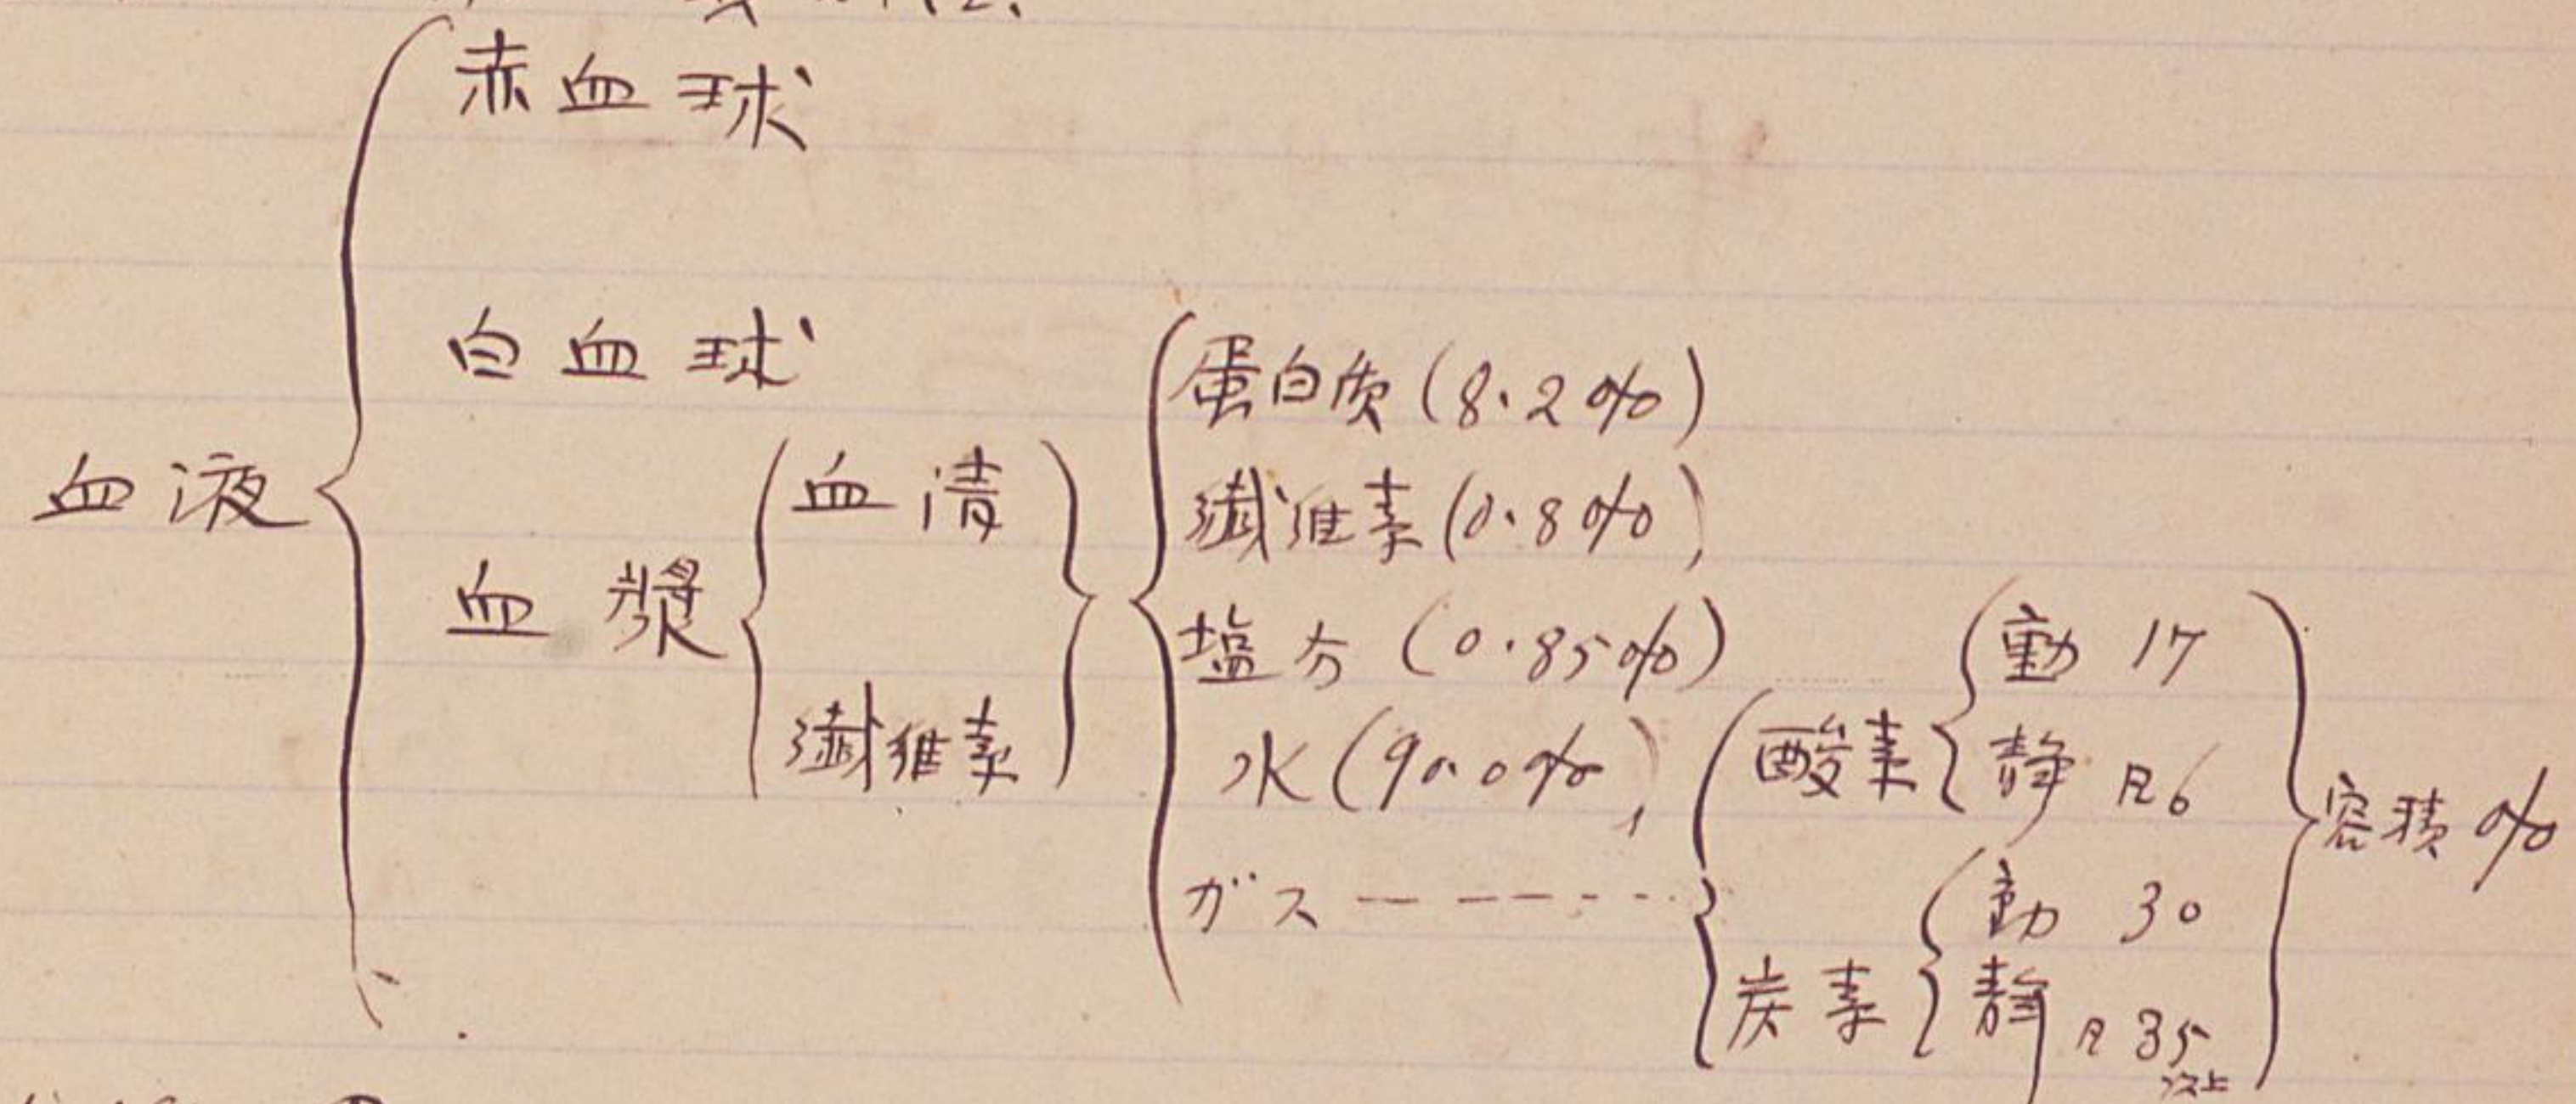 赤血球
白血球
血液
血漿
血清
纎維素
蛋白質(8.2%)
纎維素(0.8%)
塩分(0.85%)
水(90.0%)
ガス
酸素
動 17
静 6
炭素
動 30
静 35
以上
容積%